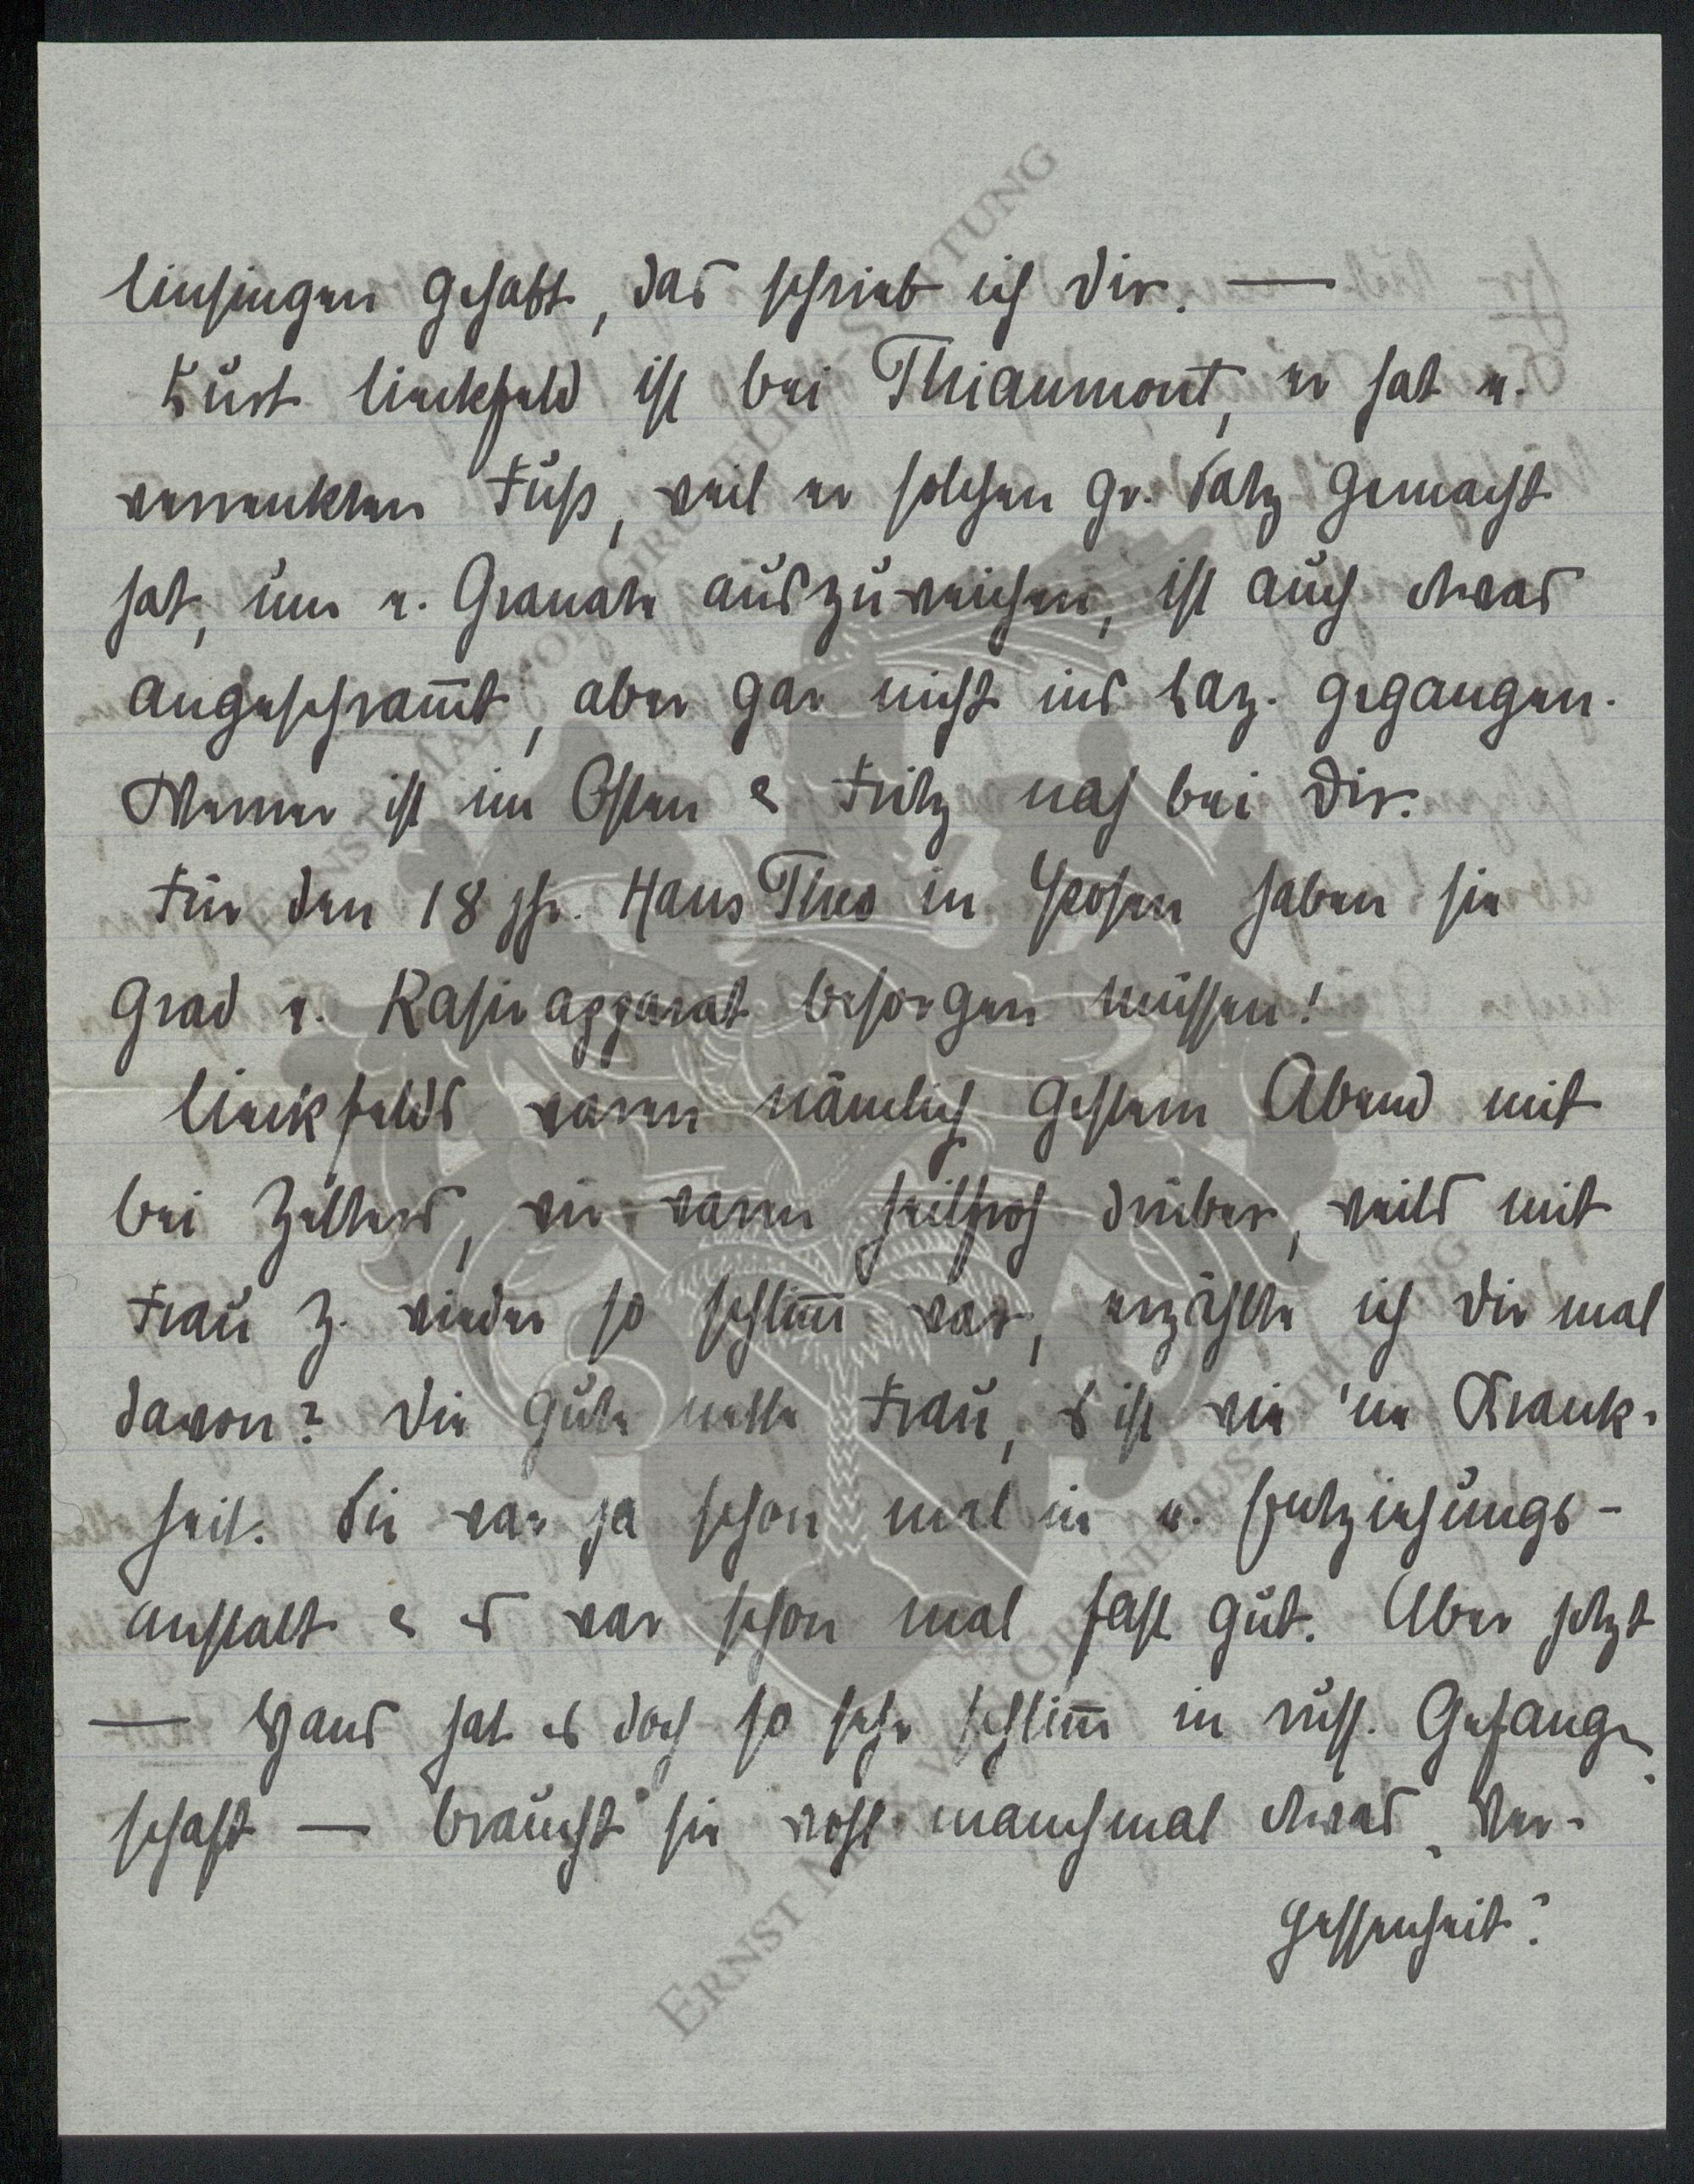 Linsingen gehabt, das schrieb ich Dir. —
Kurt Lieckfeld ist bei Thiaumont, er hat e.
verrenkten Fuß, weil er solchen gr. Satz gemacht
hat, um e. Granate auszuweichen, ist auch etwas
angeschram̅t, aber gar nicht ins Laz. gegangen.
Werner ist im Osten & Fritz nah bei Dir.
Für den 18 jhr. Hans Theo in Posen haben sie
grad e. Rasirapparat besorgen müssen!
Lieckfelds waren nämlich gestern Abend mit
bei Zelters, wir waren heilfroh drüber, weils mit
Frau Z. wieder so schlim̅ war, erzählte ich Dir mal
davon? Die gute nette Frau, s ist wie 'ne Krank-
heit. Sie war ja schon mal in e. Entziehungs-
anstalt & es war schon mal fast gut. Aber jetzt
— Hans hat es doch so sehr schlim̅ in russ. Gefangen-
schaft — braucht sie wohl manchmal etwas „Ver-
gessenheit“.
ERNST-MARTROP GRUNELIUS-STIFTUNG